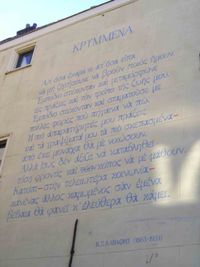 ΚΡΥΜΜΕΝΑ
Απ' όσα έκαμα κι απ' όσα είπα
να μη ζητήσουνε να βρουν ποιος ήμουν.
Εμπόδιο στέκονταν και μεταμόρφωνε
τες πράξεις και τον τρόπο της ζωής μου.
Εμπόδιο στέκονταν και σταματούσε με
πολλές φορές που πήγαινα να πω.
Οι πιο απαρατήρητές μου πράξεις
και τα γραψίματά μου τα πιο σκεπασμένα—
από εκεί μονάχα θα με νιώσουν.
Αλλά ίσως δεν αξίζει να καταβληθεί
τόση φροντίς και τόσος κόπος να με μάθουν.
Κατόπι—στην τελειοτέρα κοινωνία—
κανένας άλλος καμωμένος σαν εμένα
βέβαια θα φανεί κ' ελεύθερα θα κάμει.
Κ.Π. ΚΑΒΑΦΗΣ (1863-1933)